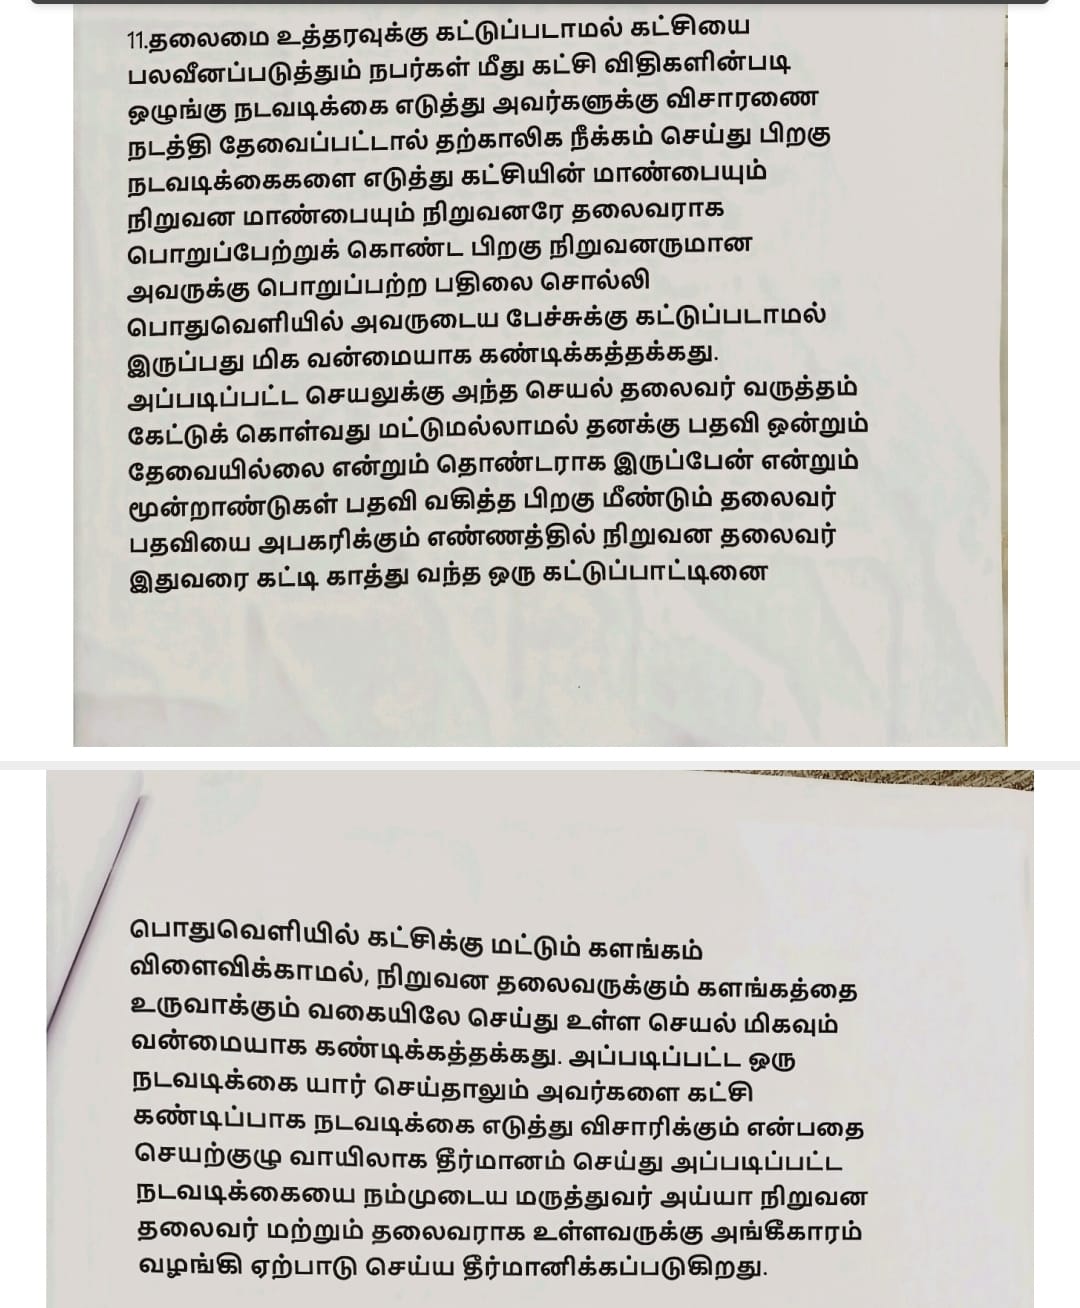 11.தலைமை உத்தரவுக்கு கட்டுப்படாமல் கட்சியை
பலவீனப்படுத்தும் நபர்கள் மீது கட்சி விதிகளின்படி
ஒழுங்கு நடவடிக்கை எடுத்து அவர்களுக்கு விசாரணை
நடத்தி தேவைப்பட்டால் தற்காலிக நீக்கம் செய்து பிறகு
நடவடிக்கைகளை எடுத்து கட்சியின் மாண்பையும்
நிறுவன மாண்பையும் நிறுவனரே தலைவராக
பொறுப்பேற்றுக் கொண்ட பிறகு நிறுவனருமான
அவருக்கு பொறுப்பற்ற பதிலை சொல்லி
பொதுவெளியில் அவருடைய பேச்சுக்கு கட்டுப்படாமல்
இருப்பது மிக வன்மையாக கண்டிக்கத்தக்கது.
அப்படிப்பட்ட செயலுக்கு அந்த செயல் தலைவர் வருத்தம்
கேட்டுக் கொள்வது மட்டுமல்லாமல் தனக்கு பதவி ஒன்றும்
தேவையில்லை என்றும் தொண்டராக இருப்பேன் என்றும்
மூன்றாண்டுகள் பதவி வகித்த பிறகு மீண்டும் தலைவர்
பதவியை அபகரிக்கும் எண்ணத்தில் நிறுவன தலைவர்
இதுவரை கட்டி காத்து வந்த ஒரு கட்டுப்பாட்டினை
பொதுவெளியில் கட்சிக்கு மட்டும் களங்கம்
விளைவிக்காமல், நிறுவன தலைவருக்கும் களங்கத்தை
உருவாக்கும் வகையிலே செய்து உள்ள செயல் மிகவும்
வன்மையாக கண்டிக்கத்தக்கது. அப்படிப்பட்ட ஒரு
நடவடிக்கை யார் செய்தாலும் அவர்களை கட்சி
கண்டிப்பாக நடவடிக்கை எடுத்து விசாரிக்கும் என்பதை
செயற்குழு வாயிலாக தீர்மானம் செய்து அப்படிப்பட்ட
நடவடிக்கையை நம்முடைய மருத்துவர் அய்யா நிறுவன
தலைவர் மற்றும் தலைவராக உள்ளவருக்கு அங்கீகாரம்
வழங்கி ஏற்பாடு செய்ய தீர்மானிக்கப்படுகிறது.